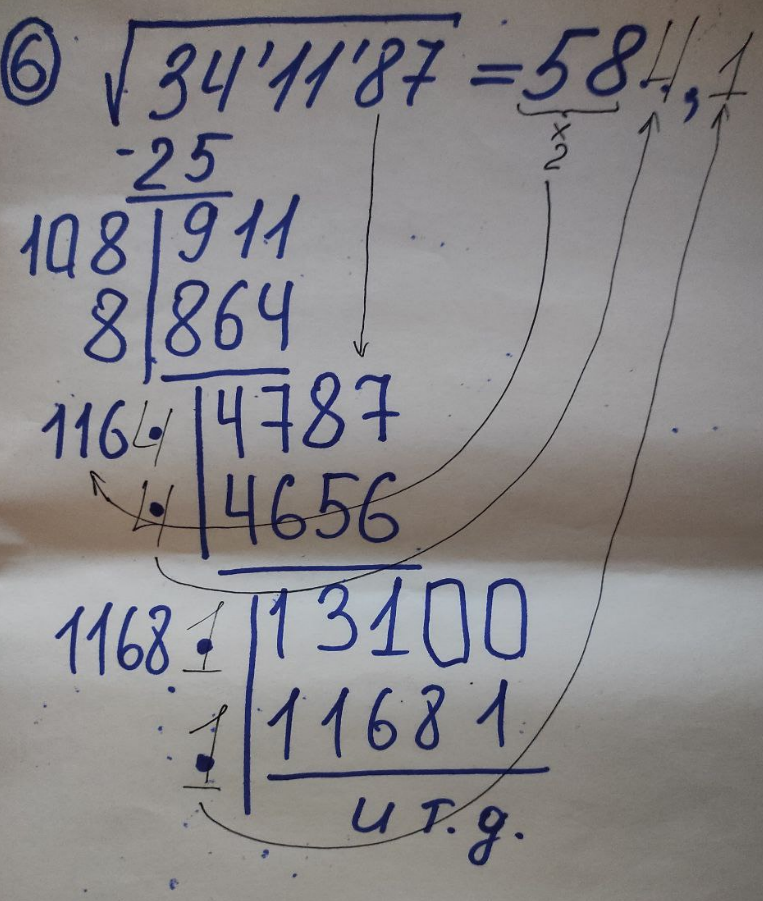 6 √34'11'87 = 584,1
-25 x2
108 | 911
8 | 864
1164 | 4787
4 | 4656
11681 | 13100
1 | 11681
и т.д.